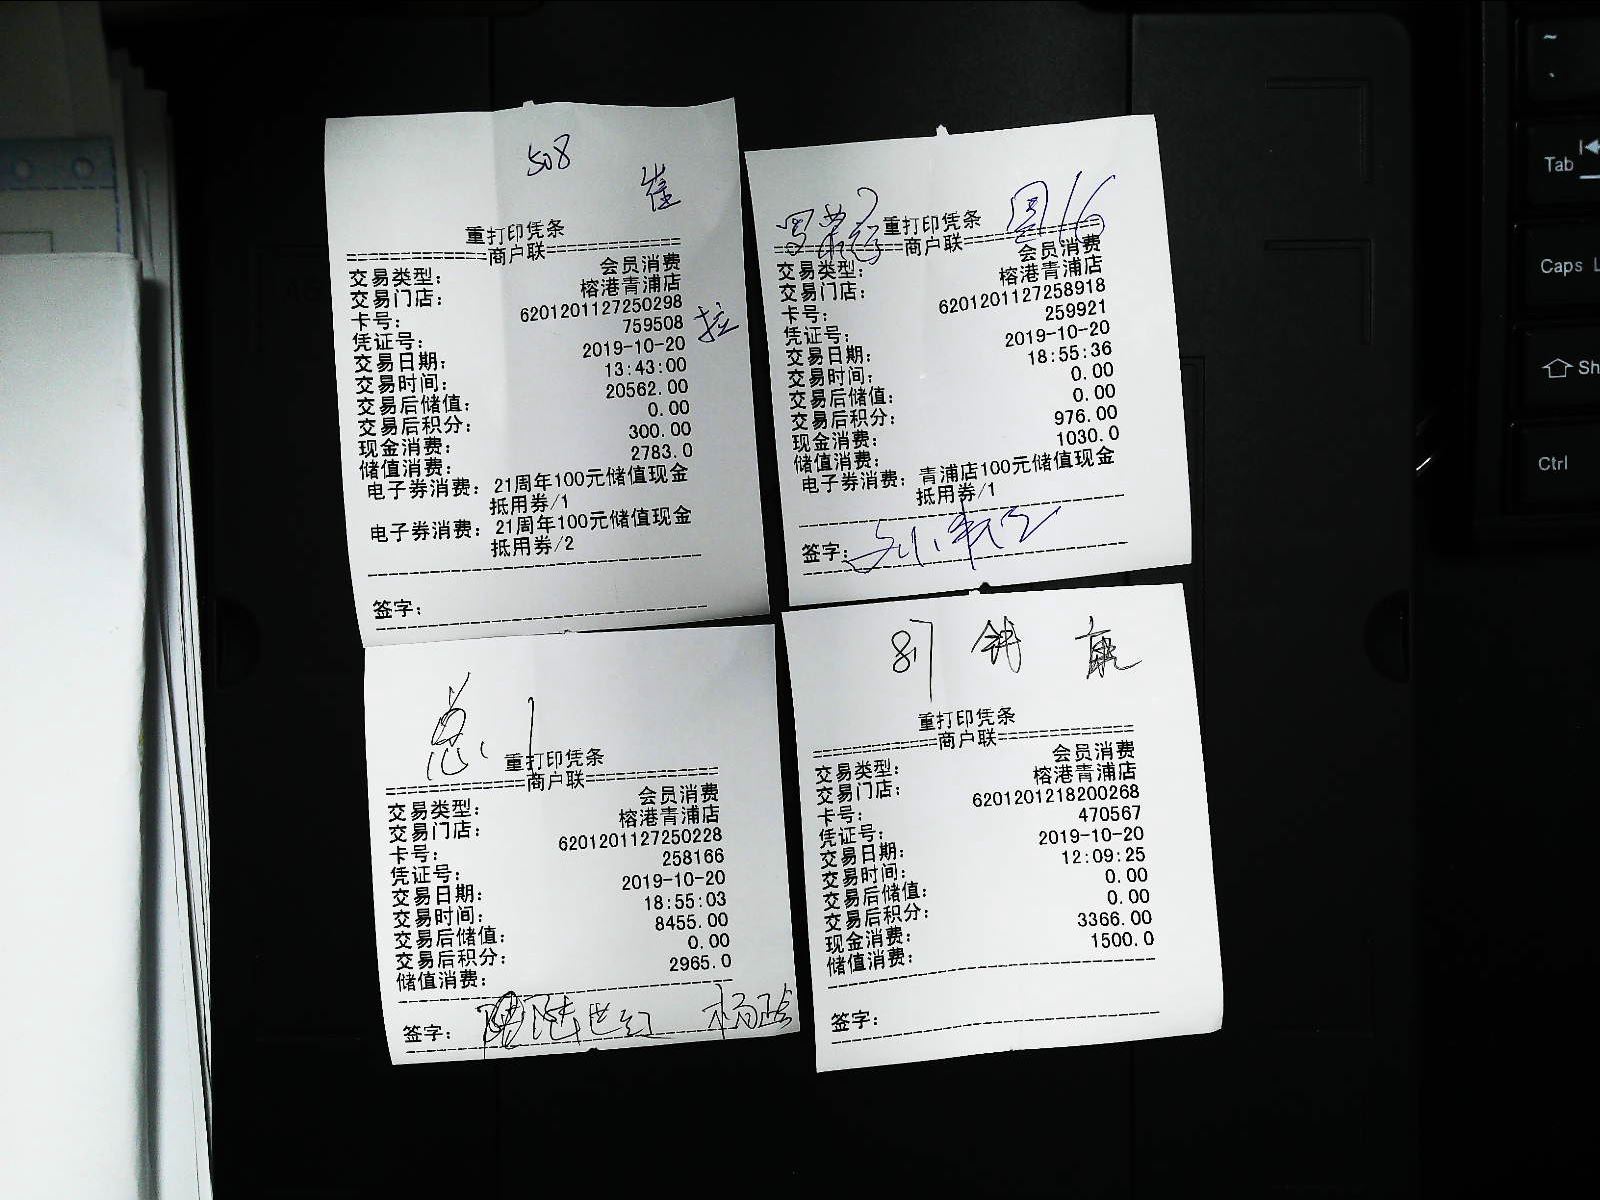 508
崔
重打印凭条
==============商户联==============
交易类型: 会员消费
交易门店: 榕港青浦店
卡号: 6201201127250298
凭证号: 759508
拉
交易日期: 2019-10-20
交易时间: 13:43:00
交易后储值: 20562.00
交易后积分: 0.00
现金消费: 300.00
储值消费: 2783.0
电子券消费: 21周年100元储值现金
抵用券/1
电子券消费: 21周年100元储值现金
抵用券/2
签字:
重打印凭条
==============商户联==============
交易类型: 会员消费
交易门店: 榕港青浦店
卡号: 6201201127258918
凭证号: 259921
交易日期: 2019-10-20
交易时间: 18:55:36
交易后储值: 0.00
交易后积分: 0.00
现金消费: 976.00
储值消费: 1030.0
电子券消费: 青浦店100元储值现金
抵用券/1
签字:
总、1
重打印凭条
==============商户联==============
交易类型: 会员消费
交易门店: 榕港青浦店
卡号: 6201201127250228
凭证号: 258166
交易日期: 2019-10-20
交易时间: 18:55:03
交易后储值: 8455.00
交易后积分: 0.00
储值消费: 2965.0
签字: 陆世红
817
重打印凭条
==============商户联==============
交易类型: 会员消费
交易门店: 榕港青浦店
卡号: 6201201218200268
凭证号: 470567
交易日期: 2019-10-20
交易时间: 12:09:25
交易后储值: 0.00
交易后积分: 0.00
现金消费: 3366.00
储值消费: 1500.0
签字:
~
Tab
Caps
Sh
Ctrl